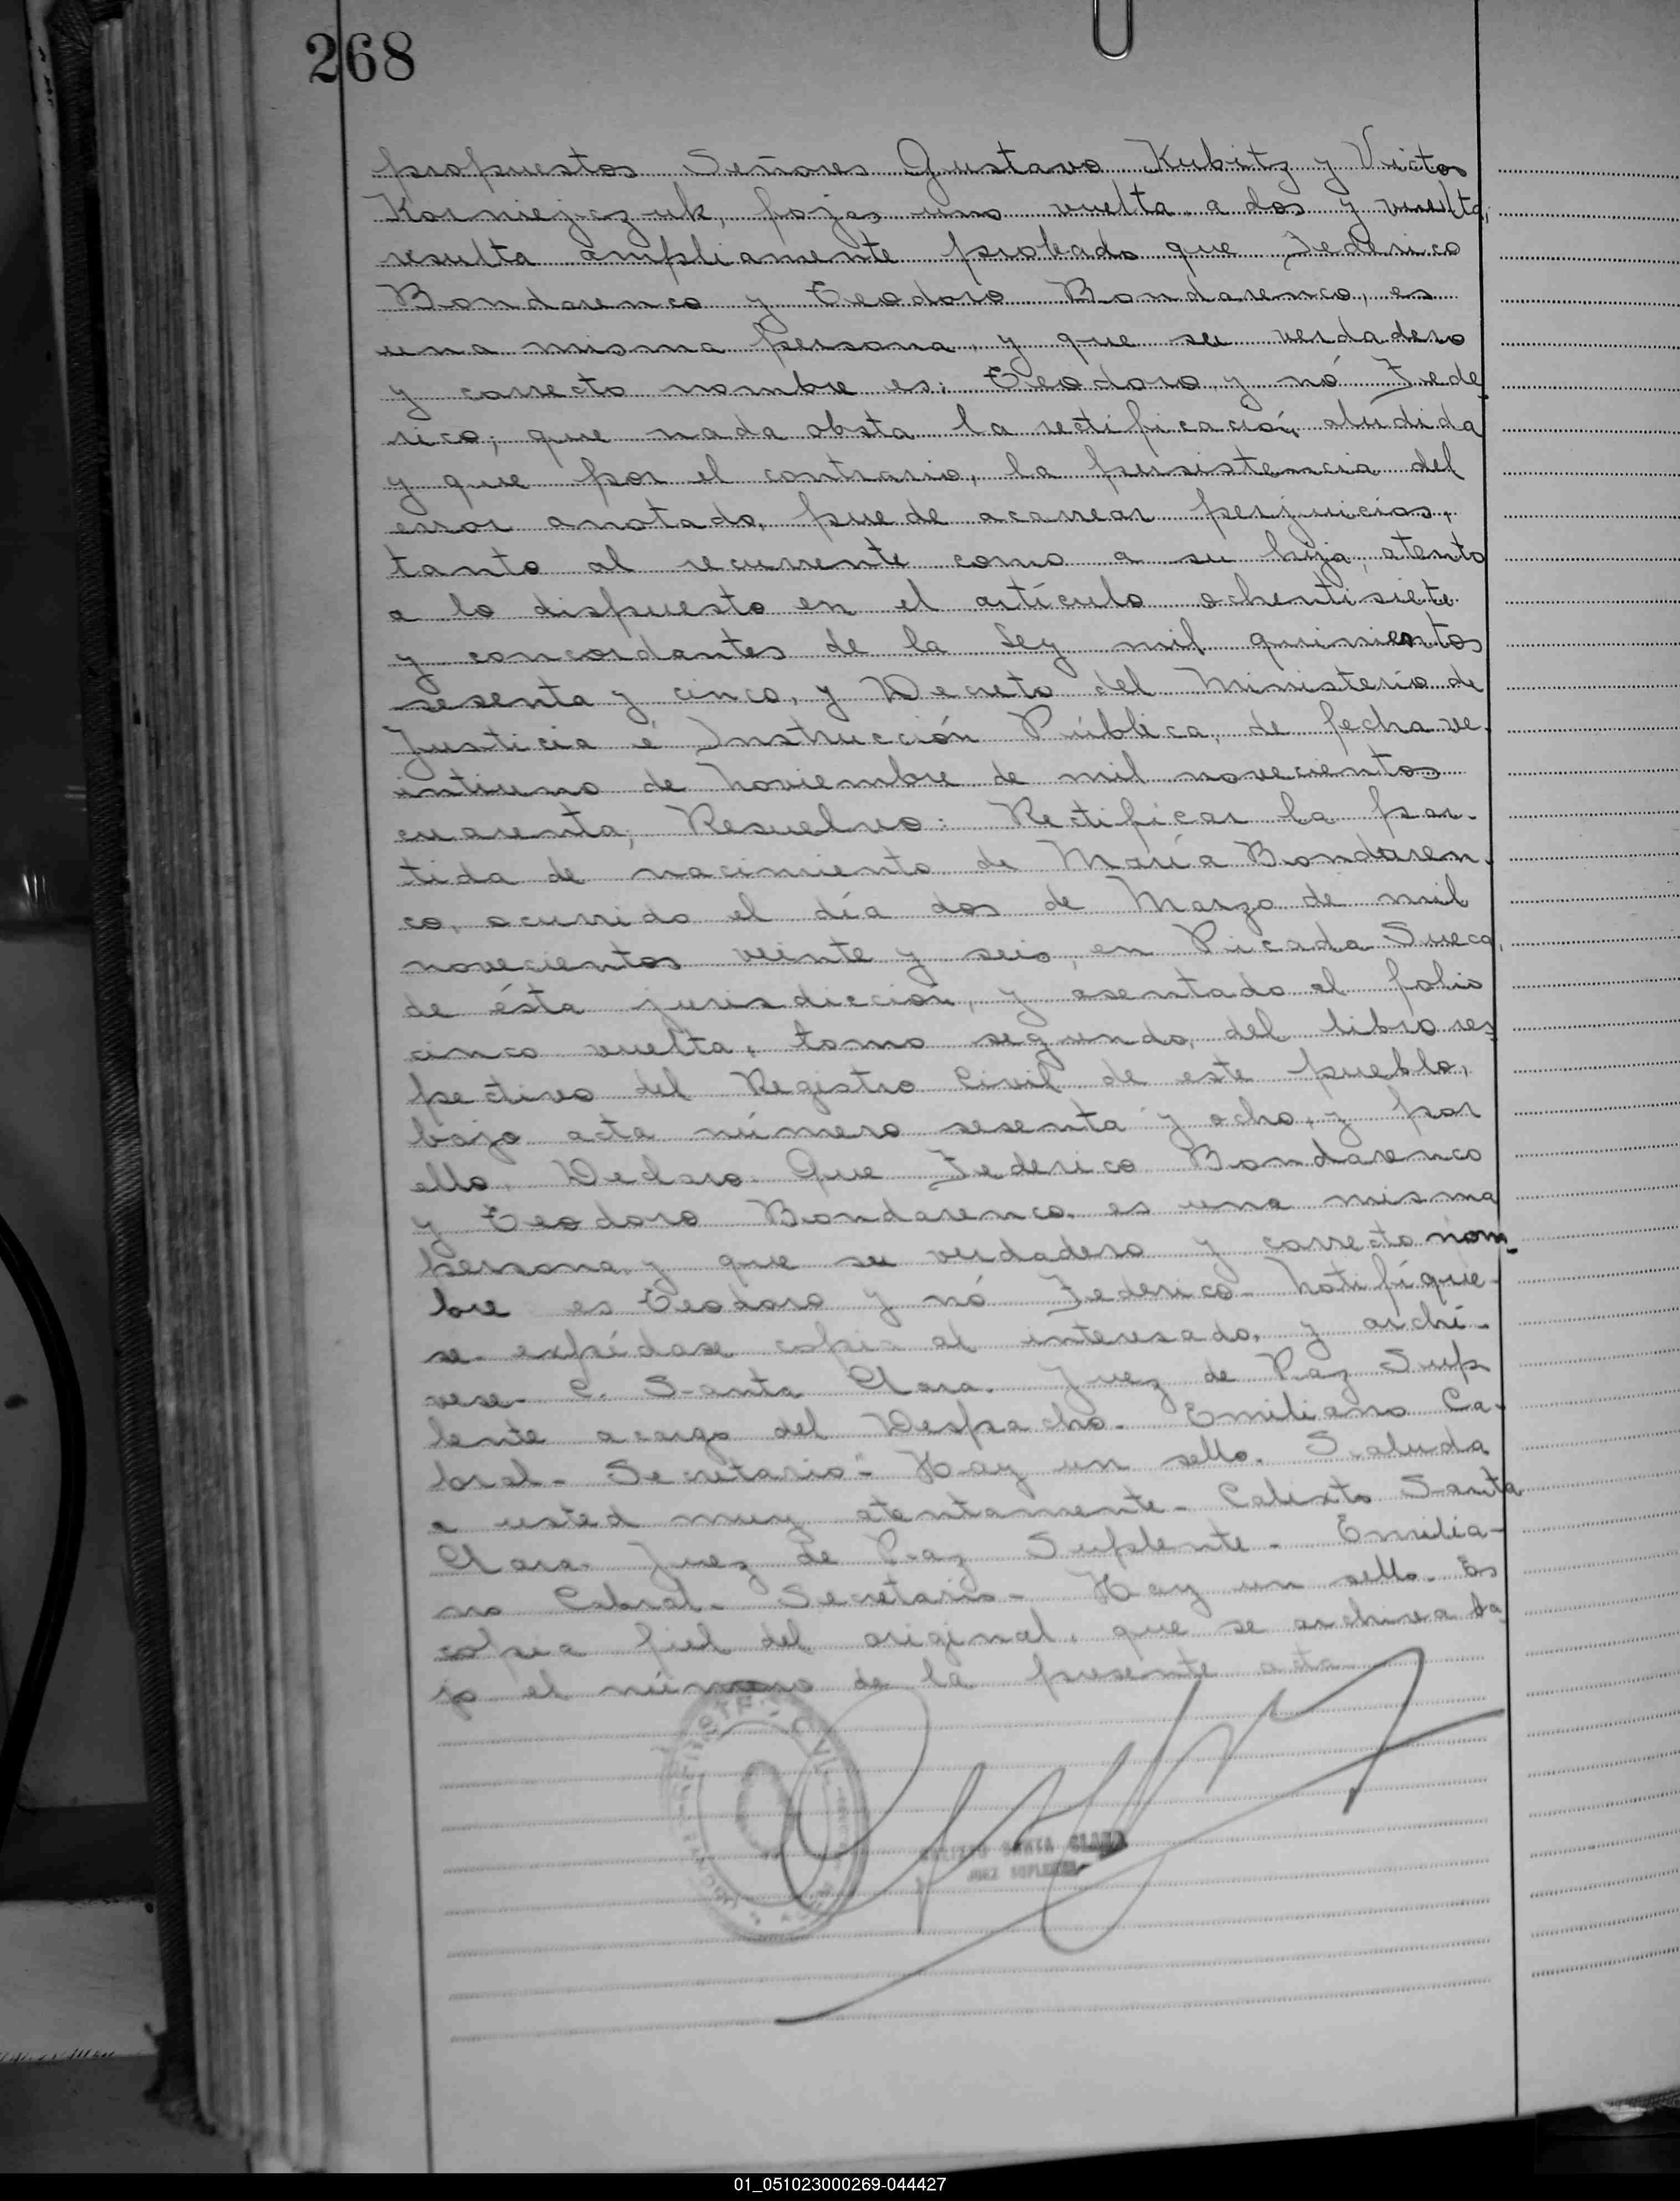 268
propuestos Señores Gustavo Kubitz y Victor
Korniejczuk, fojas uno vuelta a dos y vuelta,
resulta ampliamente probado que Federico
Bondarenco y Teodoro Bondarenco, es
una misma persona, y que su verdadero
y correcto nombre es: Teodoro y nó Fede-
rico; que nada obsta la rectificación aludida
y que por el contrario, la persistencia del
error anotado, puede acarrear perjuicios,
tanto al recurrente como a su hija; atento
a lo dispuesto en el artículo ochentisiete
y concordantes de la Ley mil quinientos
sesenta y cinco, y Decreto del Ministerio de
Justicia é Instrucción Pública, de fecha ve-
intiuno de Noviembre de mil novecientos
cuarenta; Resuelvo: Rectificar la par-
tida de nacimiento de María Bondaren-
co, ocurrido el día dos de Marzo de mil
novecientos veinte y seis, en Picada Sueca,
de ésta jurisdicción, y asentado al folio
cinco vuelta, tomo segundo, del libro res
pectivo del Registro Civil de este pueblo,
bajo acta número sesenta y ocho, y por
ello. Declaro. Que Federico Bondarenco
y Teodoro Bondarenco es una misma
persona y que su verdadero y correcto nom-
bre es Teodoro y nó Federico. Notifíque-
se. expídase copia al interesado, y archí-
vese- C. Santa Clara. Juez de Paz Sup
lente a cargo del Despacho. Emiliano Ca-
bral- Secretario.- Hay un sello. Saluda
a usted muy atentamente- Calixto Santa
Clara. Juez de Paz Suplente. Emilia-
no Cabral. Secretario- Hay un sello. Es
copia fiel del original, que se archiva ba
jo el número de la presente acta
CALIXTO SANTA CLARA
JUEZ SUPLENTE
01_051023000269-044427